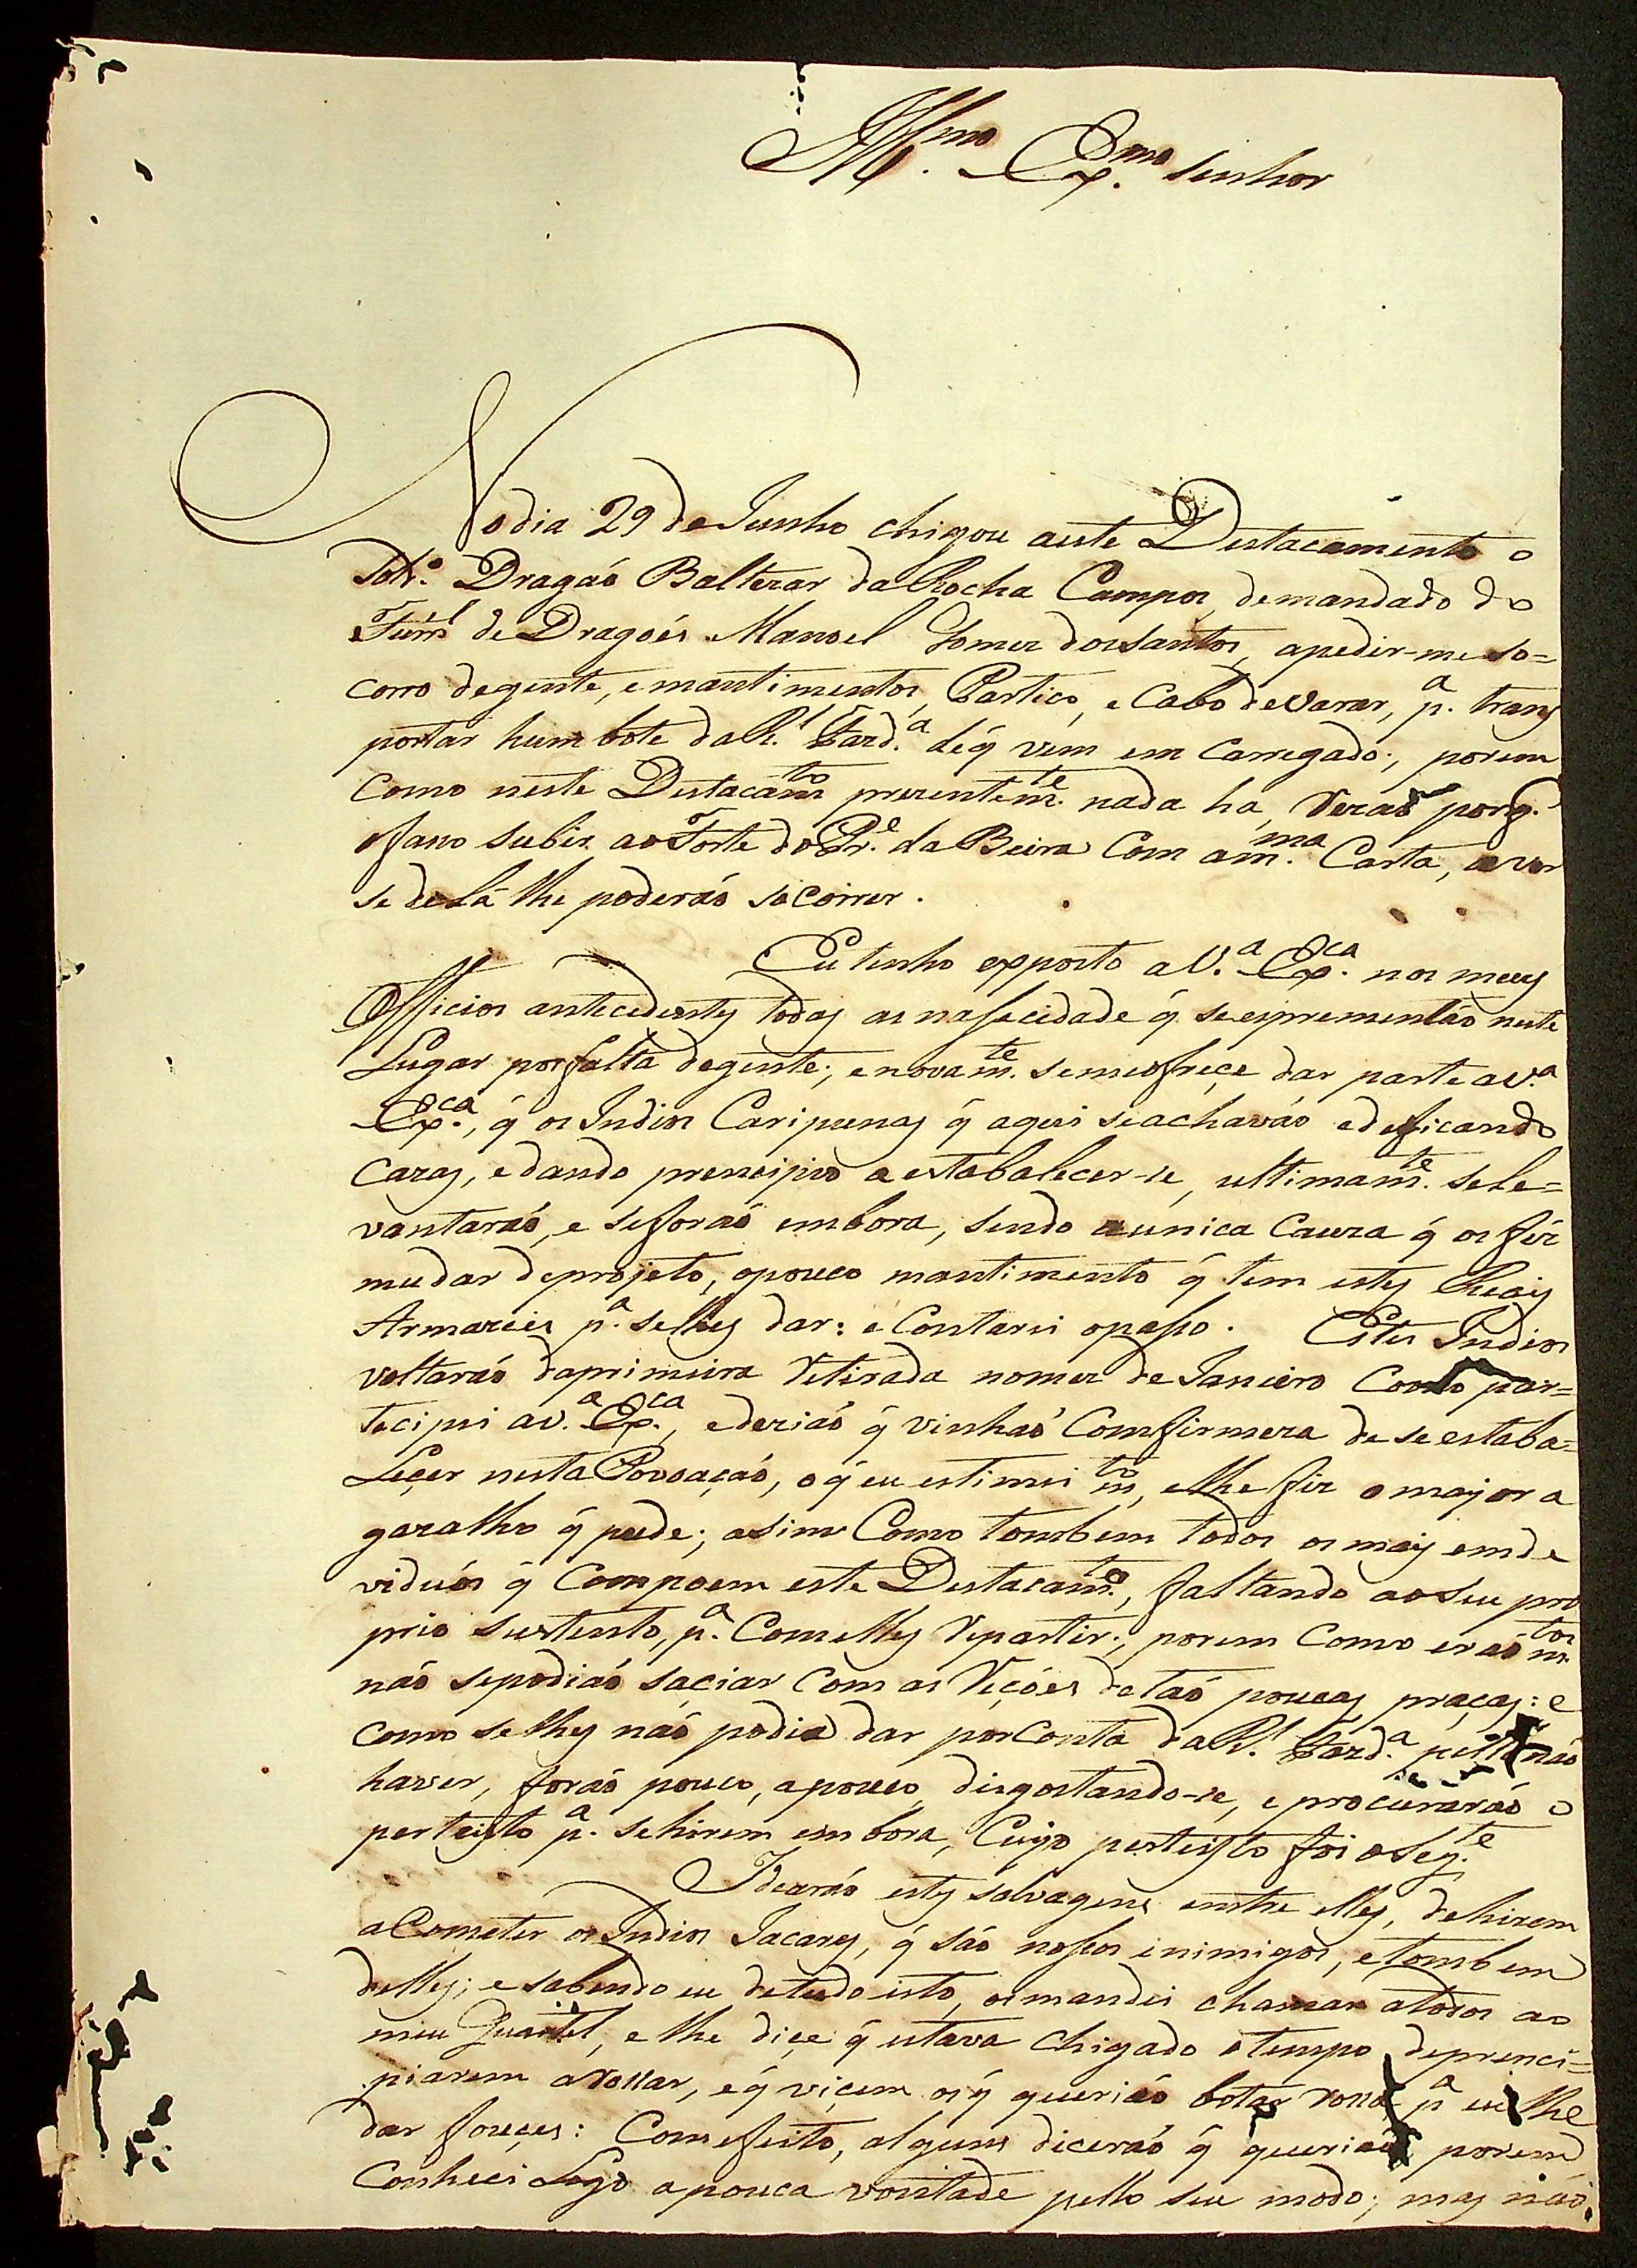 Ill.mo Ex.mo Senhor
No dia 29 de Junho chigou aeste Destacamento o
Sold.º Dragaõ Baltezar da Rocha Campos, demandado do
Fur.el de Dragoẽs Manoel Gomez dos santos, apedir-me so=
corro degente, emantimentos, Partico, e Cabo de varar, p.ª trans
portar hum bote da R.l Fazd.ª deq̃ vem em carregado; porem
como neste Destacam.to prezentem.te nada ha, Rezaõ porq̃.
ofaso subir ao Forte do Pr.e da Beira com a m.ma Carta, aver
se de Lá lhe poderáõ socorrer.
Eu tenho exposto a V.ª Ex.ca nos meus
Officios antecedentes todas as nesecidade q̃ se esprementaõ neste
Lugar por falta degente; enovam.te semeofreçe dar parte aV.ª
Ex.ca, q̃ os Indios Caripunas q̃ aqui seachavaõ edeficando
cazas, edando prencipio a estabalecer-se, ultimam.te sele=
vantaraõ, e seforaõ embora, sendo aunica cauza q̃ os féz
mudar deprojeto, opouco mantimento q̃ tem estes Reais
Armazeis p.ª selhes dar: e Contarei opaso. Estes Indios
voltaraõ daprimeira Retirada nomez de Janeiro Como par=
tecipei aV.ª Ex.ca, ediziaõ q̃ vinhaõ Comfirmeza de se estaba=
Leçer nesta Povoaçaõ, oq̃ eu estimei m.to, elhe fiz omajor a
gazalho q̃ pude; asim Como tombem todos os mais emde
viduos q̃ Compoem este Destacam.to, faltando aoseu pro
prio sustento, p.ª Comelles Repartir; porem Como eraõ m.tos
naõ sepodiaõ saçiar Com as Reçóes detaõ poucas praças: e
como selhes naõ podia dar porConta da R.l Fazd.ª pello naõ
haver, foraõ pouco, apouco, disgostando-se, e procuraraõ o
perteisto p.ª sehirem embora, Cujo perteisto foi o seg.te
Idearaõ estes salvagens entre elles, dehirem
aCometer os Indios Jacares, q̃ saõ nosos inimigos, etombem
delles; e sabendo eu detudo isto, osmandei chamar atodos ao
meu Quartel, e lhe diçe q̃ estava chigado otempo deprenci=
piarem aRossar, eq̃ viçem osq̃ queriaõ botar rossa p.ª eu lhe
dar fouçes: Comefeito, alguns diceraõ q̃ queriaõ porem
Conheci Logo apouca vontade pello seu modo; mas naõ